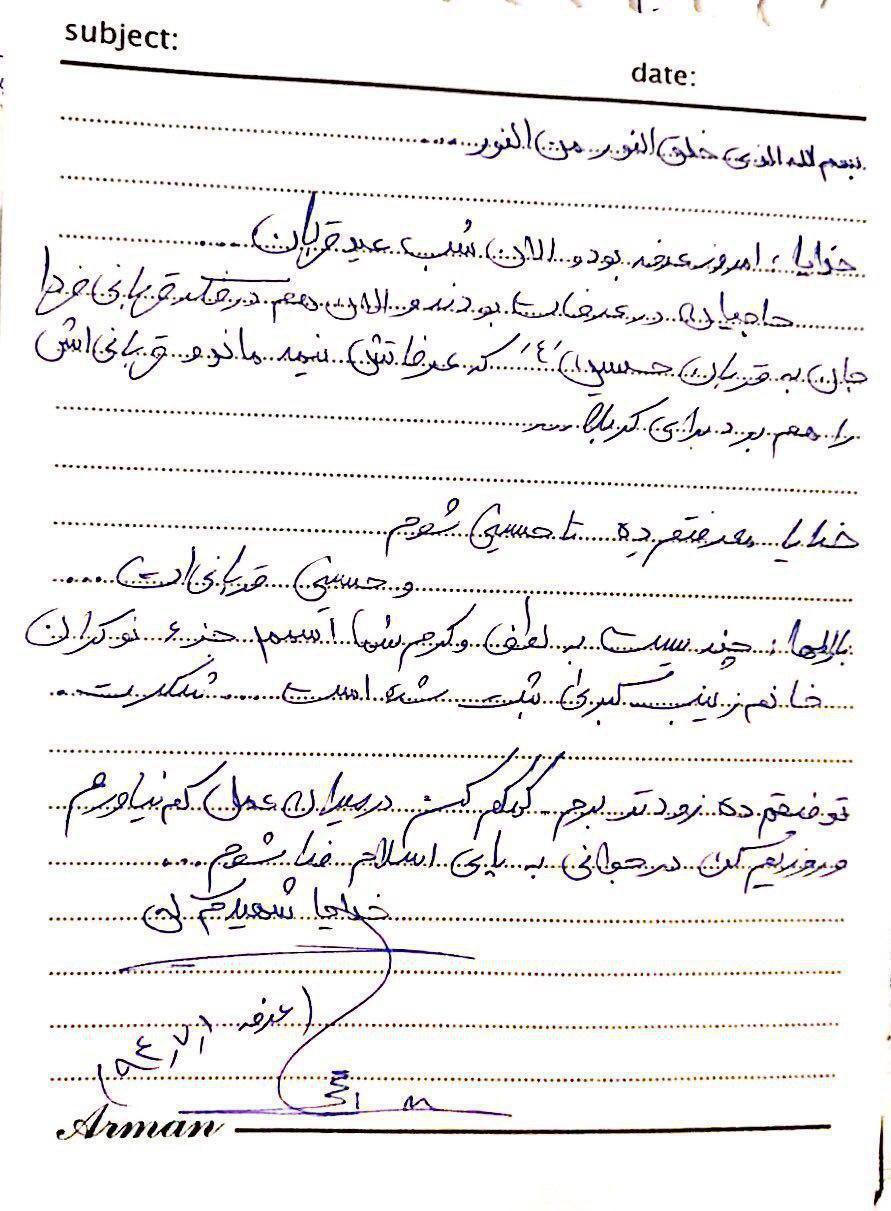 subject:
date:
بسم الله الذی خلق النور من النور ....
خدایا ، امروز عرفه بود و الان شب عید قربان ....
حاجیان در عرفات بودند و الان هم در فکر قربانی فردا
جان به قربان حسین (ع) که عرفاتش نیمه ماند و قربانی‌اش
را هم برد برای کربلا ....
خدایا معرفتم ده تا حسینی شوم
و حسینی قربانی‌ات ....
بارالها ، چند سیست به لطف و کرم شما اسمم جزء نوکران
خانم زینب کبری ثبت شده است .... شکرت ..
توفیقم ده زودتر برم کمکم کن در میزان عمل کم نیاورم
و روزیم کن در جوانی به پای اسلام فدا شوم ...
خدایا شهیدم کن
(عرفه ۹۴/۷/۱)
Arman